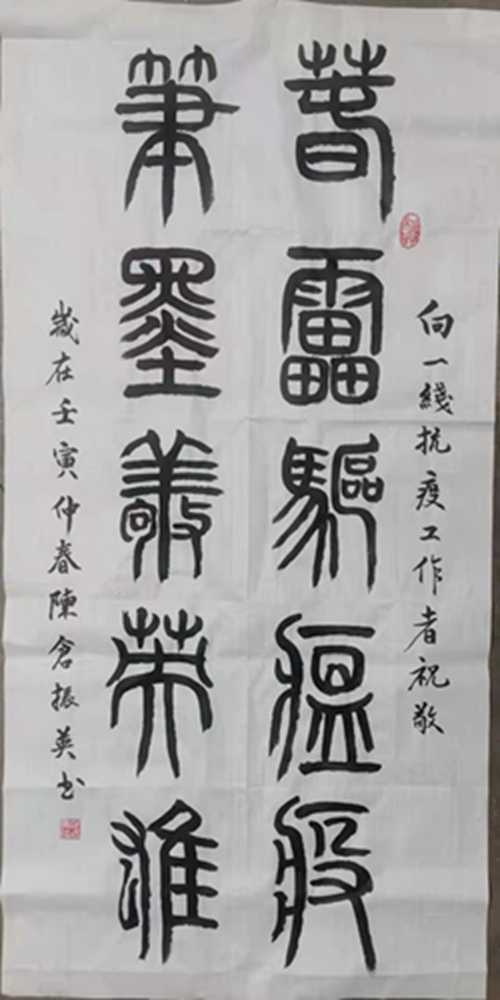 向一綫抗疫工作者祝敬
春雷驅瘟疫
筆墨敬英雄
歲在壬寅仲春陳倉振英书